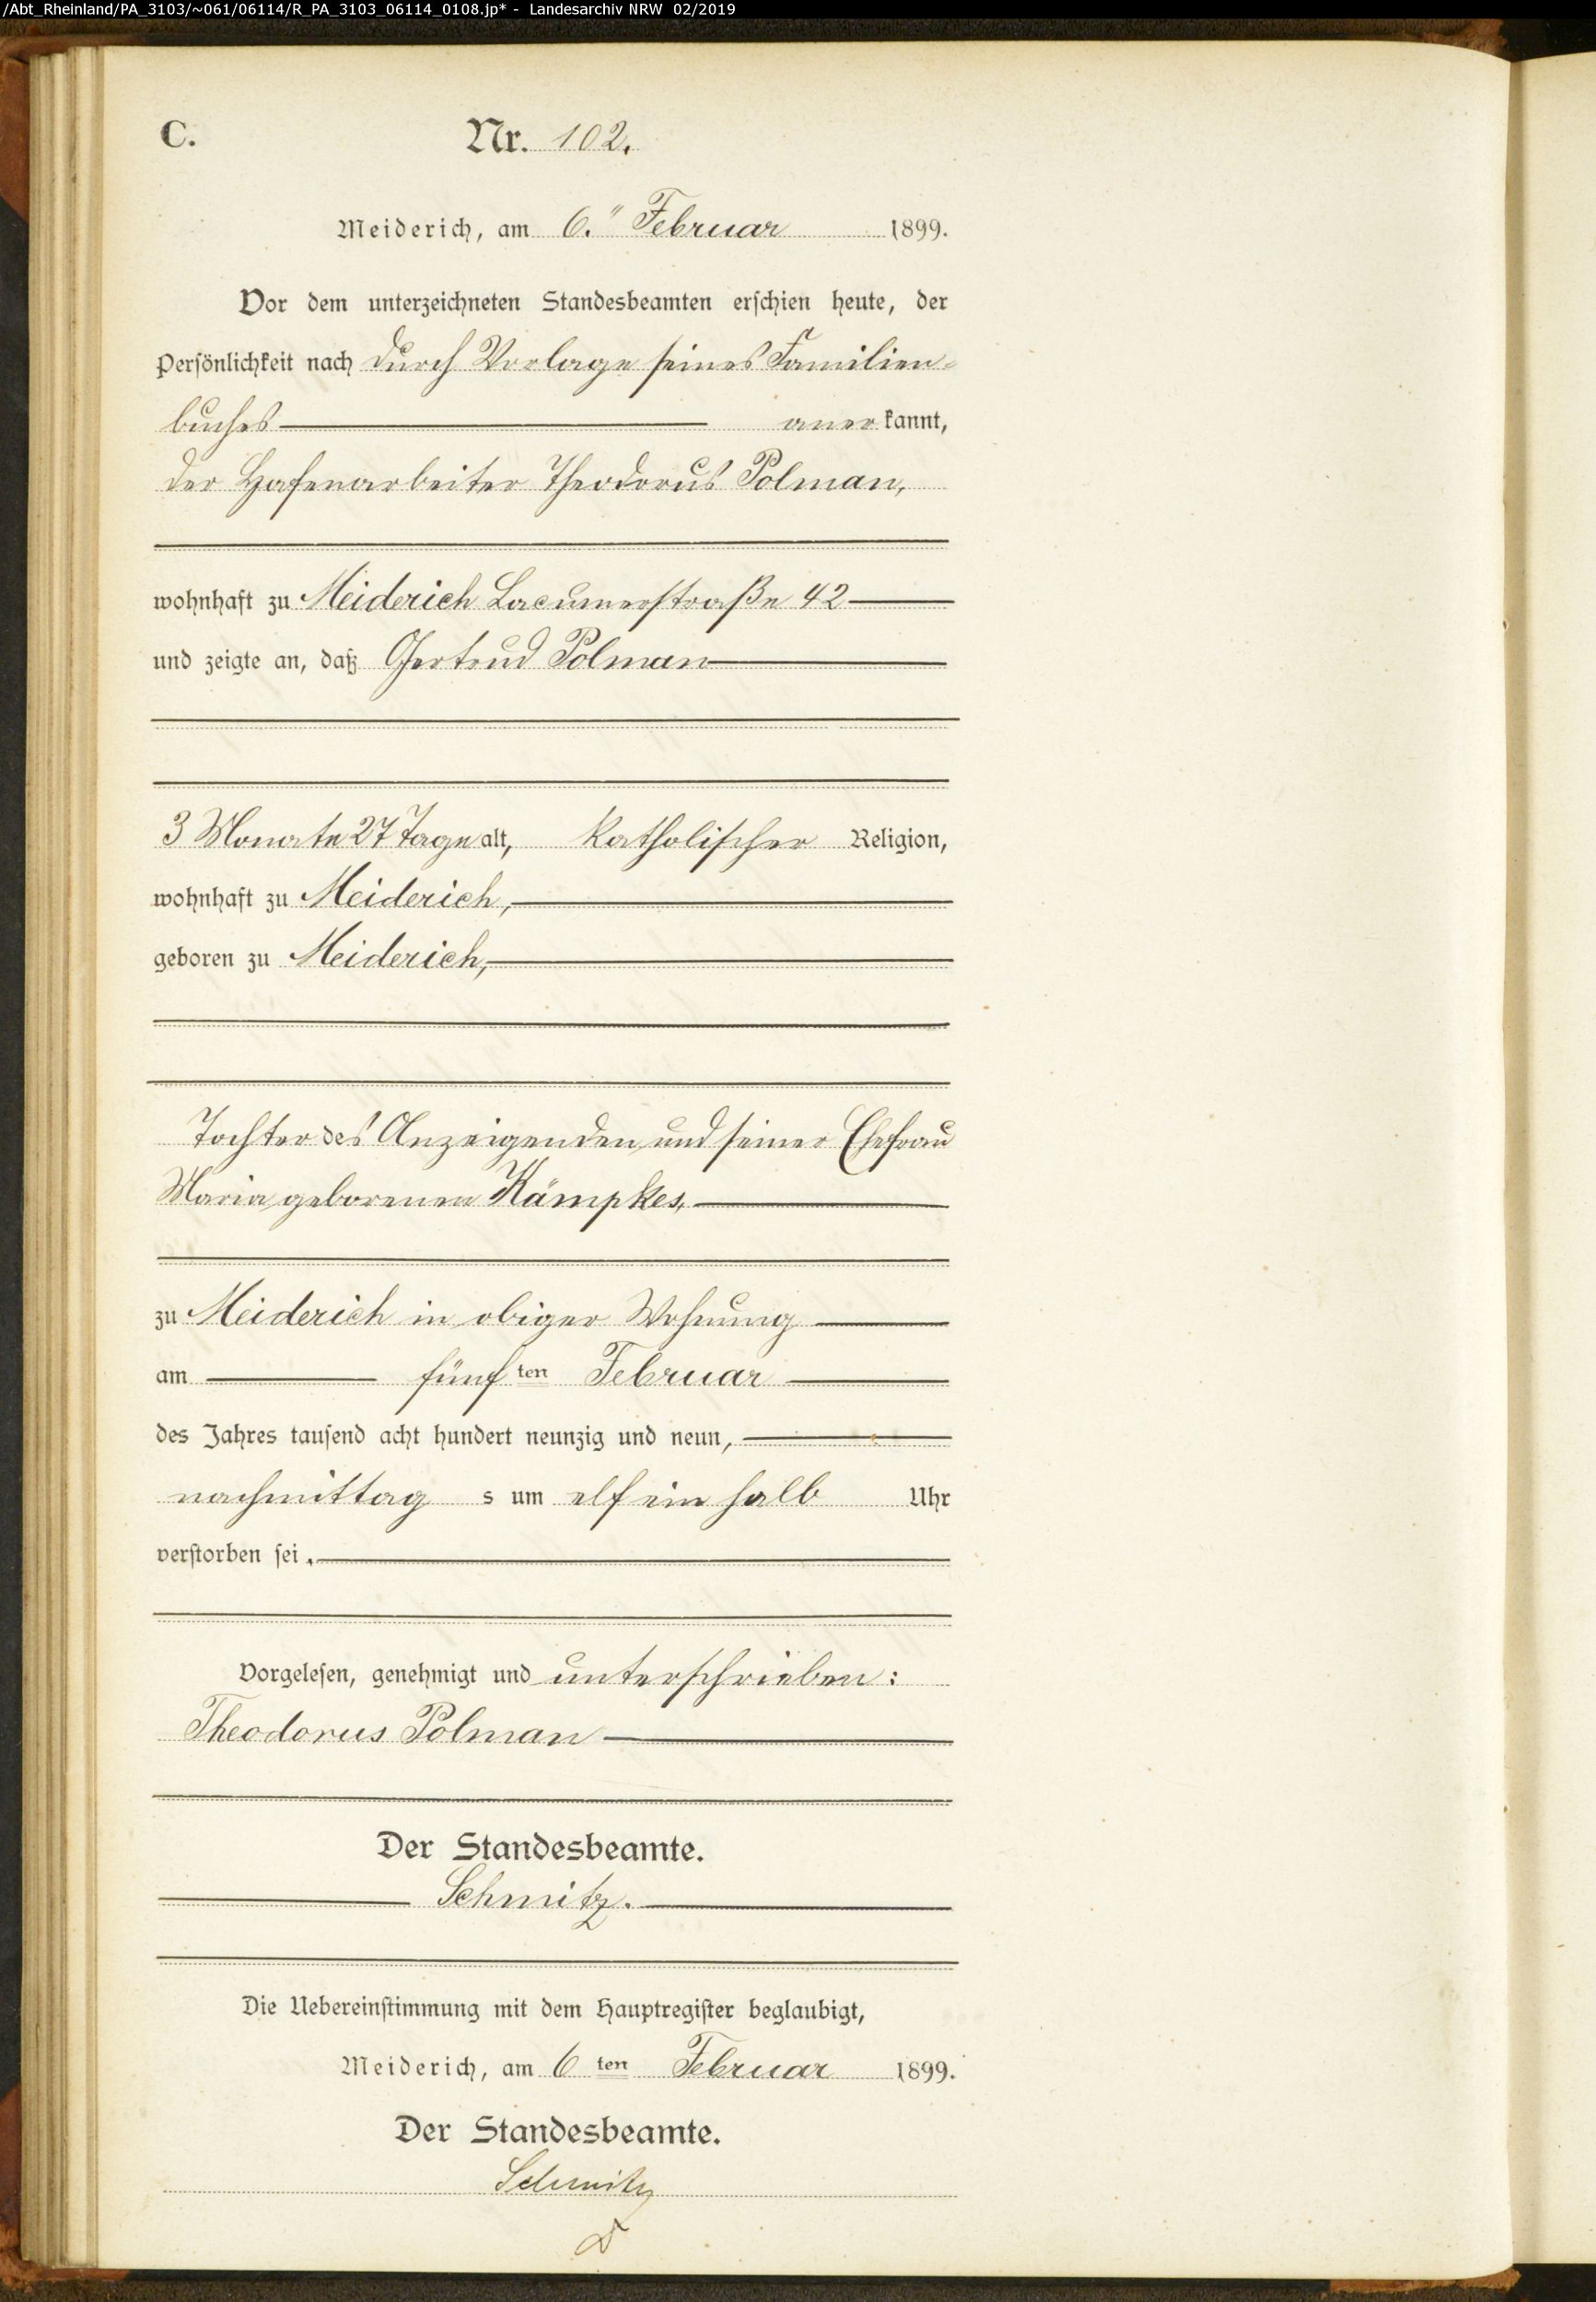 /Abt_Rheinland/PA_3103/~061/06114/R_PA_3103_06114_0108.jp* - Landesarchiv NRW 02/2019
C. Nr. 102.
Meiderich, am 6." Februar 1899.
Vor dem unterzeichneten Standesbeamten erschien heute, der
Persönlichkeit nach durch Vorlage seines Familien-
buches anerkannt,
der Hafenarbeiter Theodorus Polman,
wohnhaft zu Meiderich Lacumerstraße 42
und zeigte an, daß Gertrud Polman
3 Monate 27 Tage alt, katholischer Religion,
wohnhaft zu Meiderich,
geboren zu Meiderich,
Tochter des Anzeigenden und seiner Ehefrau
Maria geborenen Kämpkes,
zu Meiderich in obiger Wohnung
am fünften Februar
des Jahres tausend acht hundert neunzig und neun,
nachmittags um elf ein halb Uhr
verstorben sei.
Vorgelesen, genehmigt und unterschrieben:
Theodorus Polman
Der Standesbeamte.
Schmitz.
Die Uebereinstimmung mit dem Hauptregister beglaubigt,
Meiderich, am 6ten Februar 1899.
Der Standesbeamte.
Schmitz